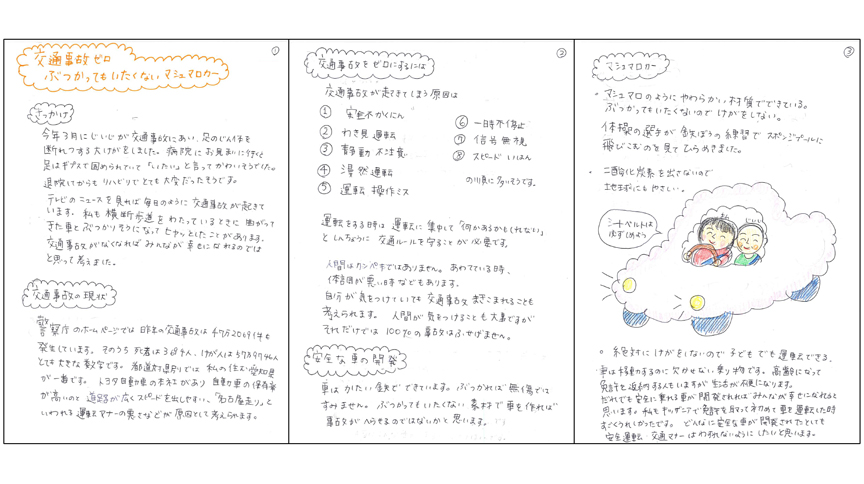 ①
交通事故ゼロ
ぶつかってもいたくない マシュマロカー
きっかけ
今年3月にじいじが交通事故にあい、足のじん体を
断れつする大けがをしました。病院にお見まいに行くと
足はギプスで固められていて「いたい」と言ってかわいそうでした。
退院してからも リハビリでとても大変だったそうです。
テレビのニュースを見れば毎日のように交通事故が起きて
います。私も横断歩道をわたっているときに曲がって
きた車とぶつかりそうになってヒヤッとしたことがあります。
交通事故がなくなればみんなが幸せになれるのでは
と思って考えました。
交通事故の現状
警察庁のホームページでは昨年の交通事故は
発生しています。そのうち死者は
とても大きな数字です。都道府県別では 私の住む愛知県
が一番です。トヨタ自動車の本社があり 自動車の保有率
が高いのと 道路が広くスピードを出しやすい、「名古屋走り」と
いわれる運転マナーの悪さなどが原因として考えられます。
②
交通事故をゼロにするには
交通事故が起きてしまう原因は
① 安全不かくにん
② わき見運転
③ 静動不注意
④ 漫然運転
⑤ 運転操作ミス
⑥ 一時不停止
⑦ 信号無視
⑧ スピードいはん
の順に多いそうです。
運転をする時は 運転に集中して「何かあるかもしれない」
としんちょうに 交通ルールを守ることが必要です。
人間はカンペキではありません。あわてている時、
体調が悪い日などもあります。
自分が気をつけていても 交通事故にまきこまれることも
考えられます。人間が気をつけることも大事ですが
それだけでは100%の事故はふせげません。
安全な車の開発
車はかたい鉄でできています。ぶつかれば無傷では
すみません。ぶつかってもいたくない素材で車を作れば
事故がへらせるのではないかと思います。
③
マシュマロカー
。マシュマロのようにやわらかい材質でできている。
ぶつかってもいたくないのでけがをしない。
体操の選手が鉄ぼうの練習でスポンジプールに
飛びこむのを見てひらめきました。
。二酸化炭素を出さないので
地球にもやさしい。
シートベルトは
必ずしめよう
じいじ
。絶対にけがをしないので子どもでも運転できる。
車は移動するのに欠かせない乗り物です。高齢になって
免許を返納する人もいますが生活が不便になります。
だれでも安全に乗れる車が開発されればみんなが幸せになれると
思います。私もキッザニアで免許を取って初めて車を運転した時
すごくうれしかったです。どんなに安全な車が開発されたとしても
安全運転、交通マナーはわすれないようにしたいと思います。